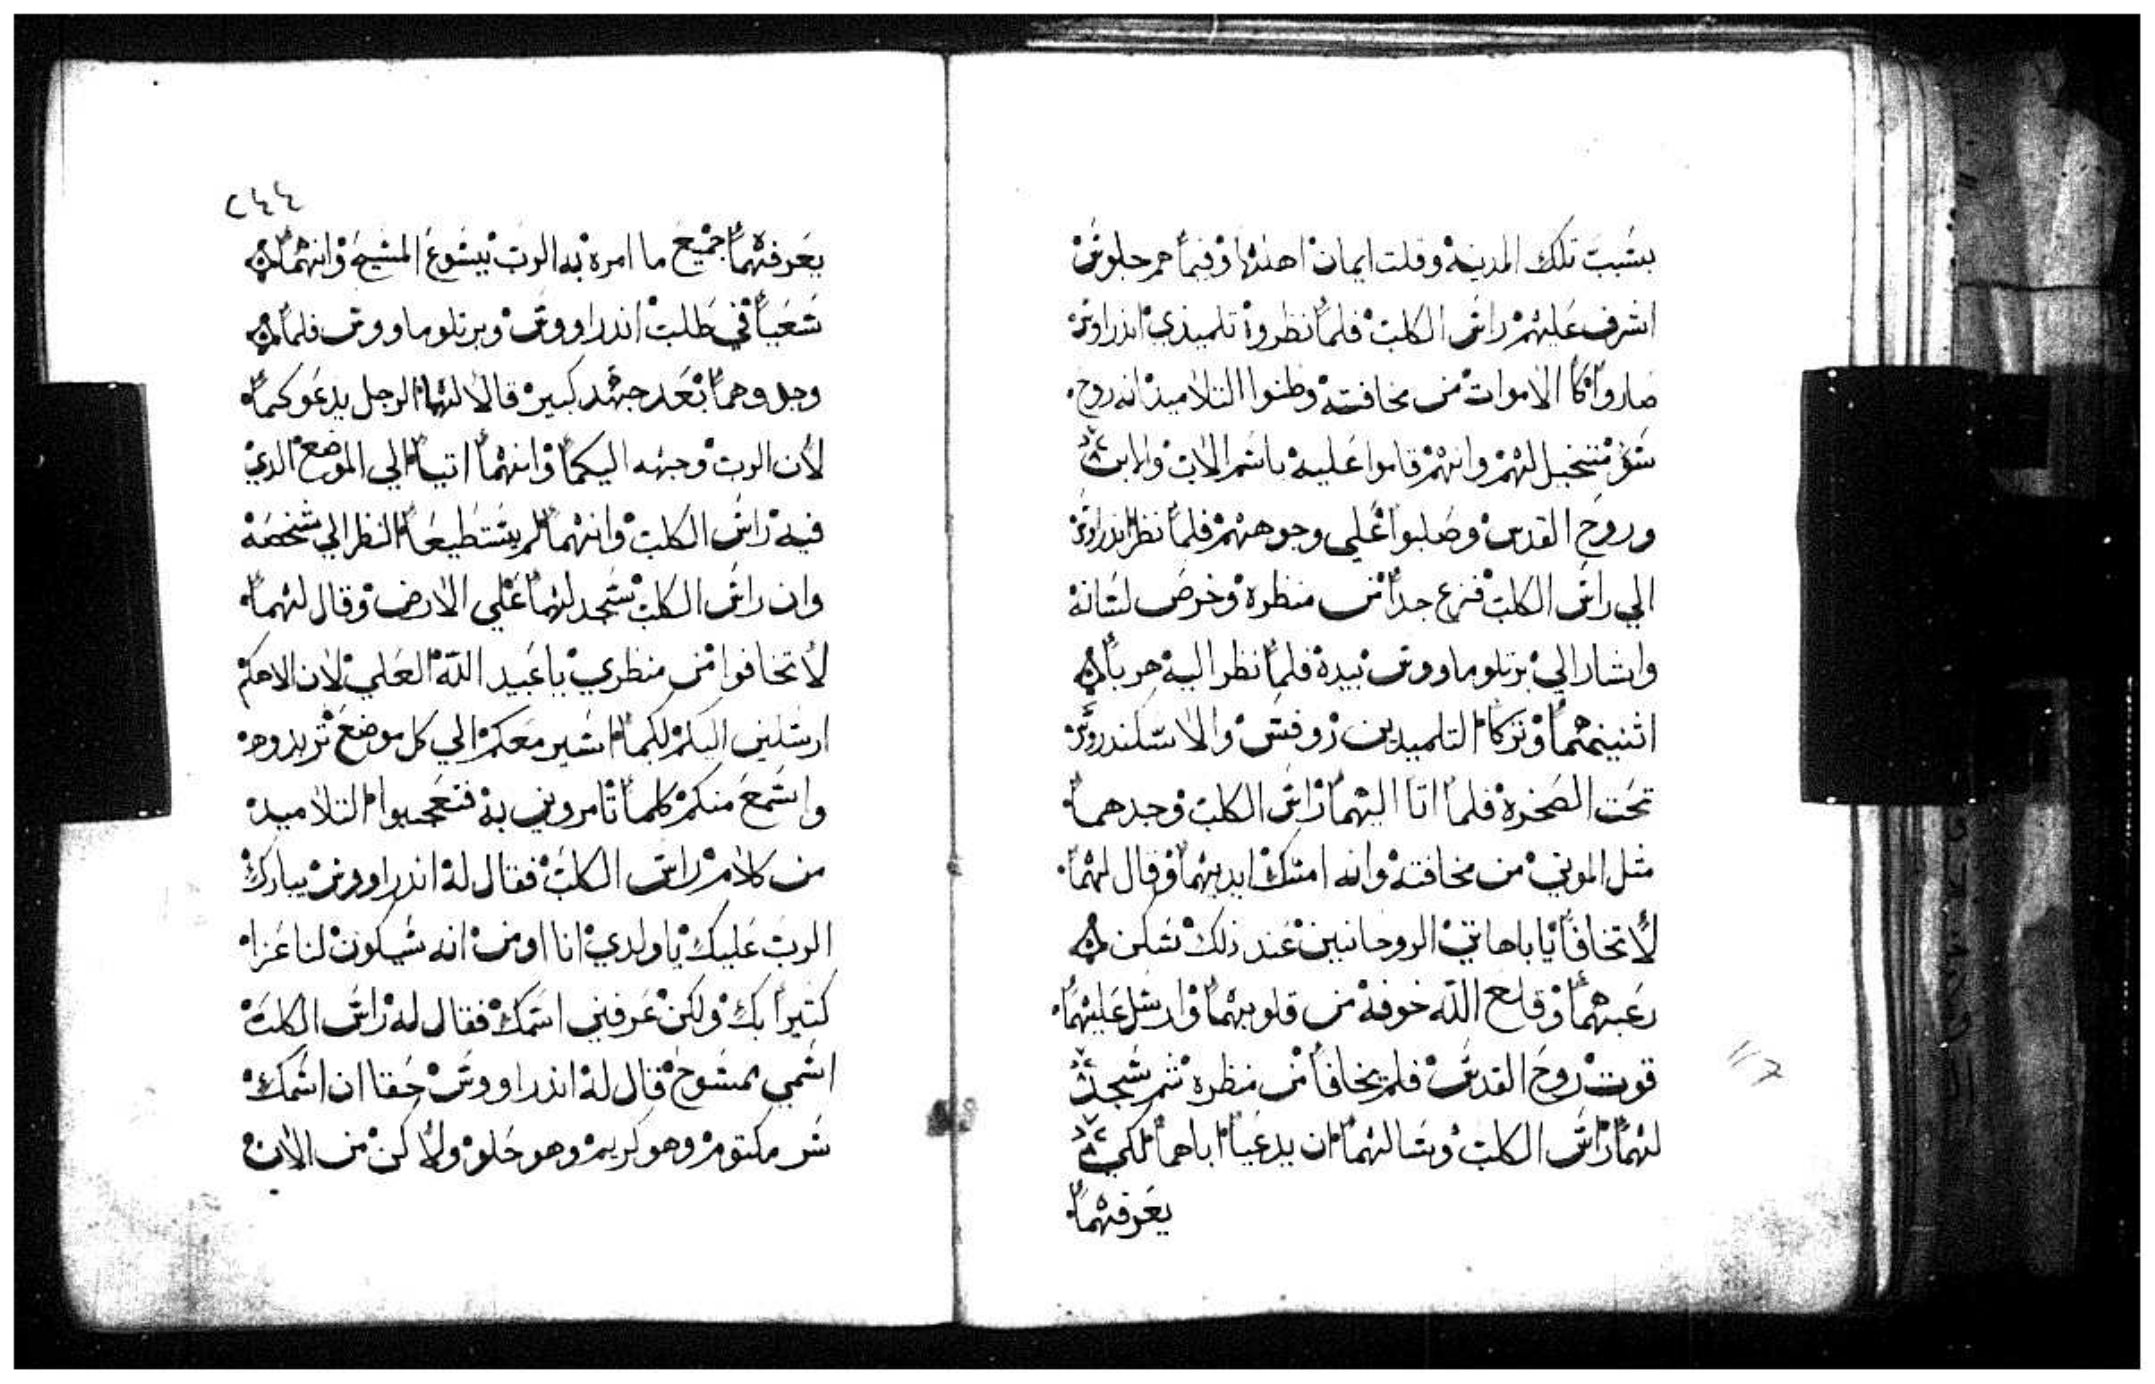 بسبب تلك المدينة وقلت ايمان اهلها وفيما هم جلوس
اشرف عليهم راس الكلب فلما نظروا تلميذي اندراوس
صاروا كا الاموات من مخافته وظنوا التلاميذ انه روح
سؤ متخيل لهم وانهم قاموا عليه باسم الاب والابن
وروح القدس وصلبوا علي وجوههم فلما نظر اندراوس
الي راس الكلب فزع جدا من منظره وخرص لسانه
واشار الي برتلوماووس بيده فلما نظر اليه هربا
اثنينهما وتركا التلميدين روفس والاسكندروس
تحت الصخرة فلما اتا اليهما راس الكلب وجدهما
مثل الموتي من مخافته وانه امسك ايديهما وقال لهما
لا تخافا يا باهاتي الروحانيين عند ذلك سكن
رعبهما وقلع الله خوفه من قلوبهما وارسل عليهما
قوت روح القدس فلم يخافا من منظره ثم سجد
لهما راس الكلب وسالهما ان يدعيا اباهما لكي
يعرفهما
٢٤٤
يعرفهما جميع ما امره به الرب يسوع المسيح وانهما
سعيا في طلب اندراووس وبرتلوماووس فلما
وجدوهما بعد جهد كبير قالا لهما الرجل يدعوكما
لان الرب وجهه اليكما وانهما اتيا الي الموضع الدي
فيه راس الكلب وانهما لم يستطيعا النظر الي شخصه
وان راس الكلب سجد لهما علي الارض وقال لهما
لا تخافوا من منظري يا عبيد الله العلي لان الاهكم
ارسلني اليكم لكيما اسير معكم الي كل موضع تريدوه
واسمع منكم كلما تامروني به فتعجبوا التلاميد
من كلام راس الكلب فقال له اندراووس يبارك
الرب عليك يا ولدي انا اومن انه سيكون لنا عزا
كتيرا بك ولكن عرفني اسمك فقال له راس الكلب
اسمي ممسوح قال له اندراووس حقا ان اسمك
سر مكتوم وهو كريم وهو حلو ولا كن من الان